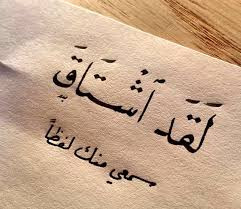 لَقَدَ اَشْتَاقَ
سمعي منك لفظاً